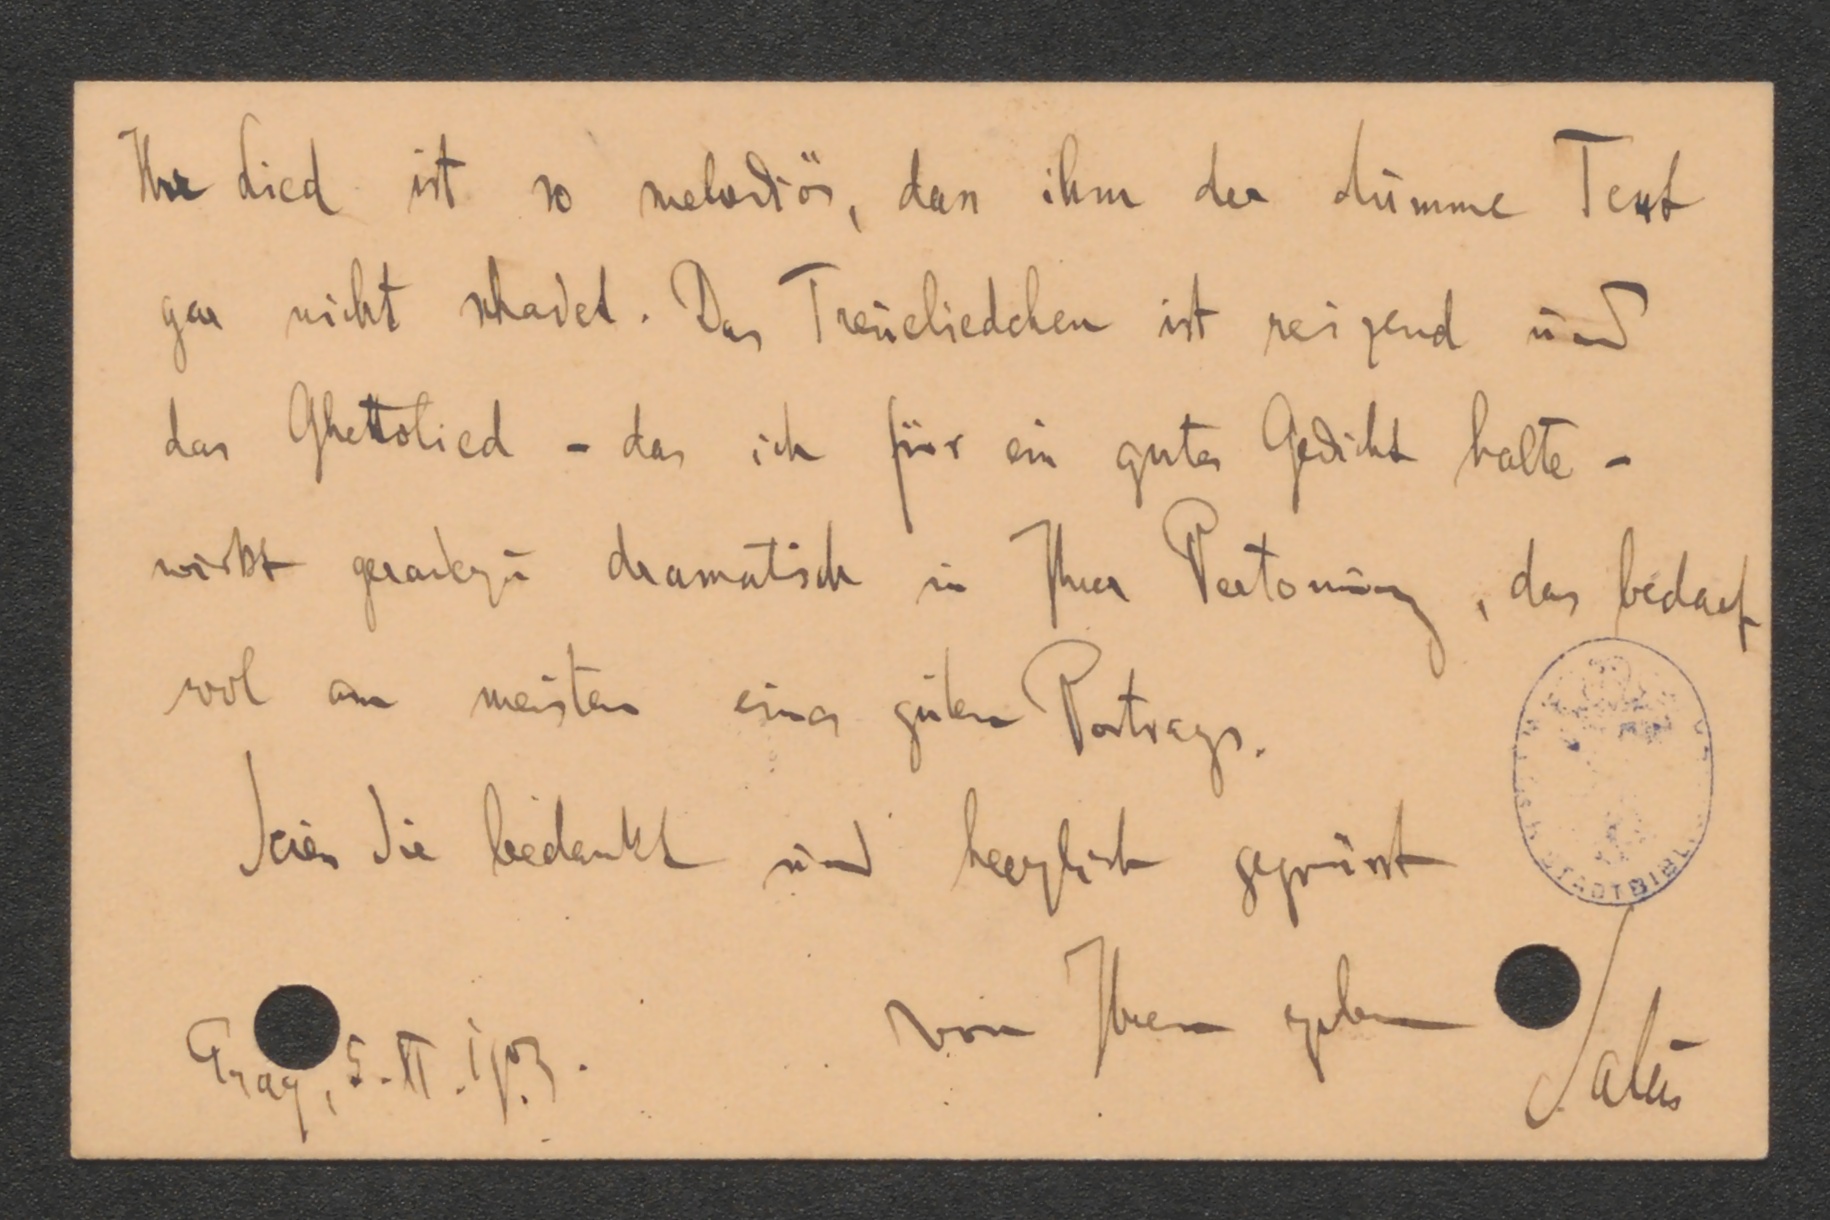 Ihr Lied ist so melodiös, dass ihm der dumme Text
gar nicht schadet. Das Treueliedchen ist reizend und
das Ghettolied - das ich für ein gutes Gedicht halte -
wirkt geradezu dramatisch in Ihrer Vertonung, das bedarf
wol am meisten eines guten Vortrags.
Seien Sie bedankt und herzlich gegrüsst
von Ihrem ergebenen Salus
Prag, 5. VI. 1903.
STADTBIBL.